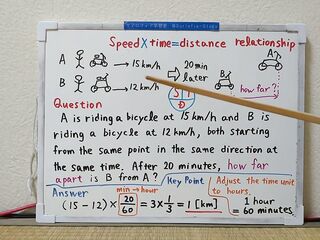 Speed×time=distance relationship
A → 15 km/h
20 min later
A
B → 12 km/h
B
how far?
S T
D
Question
A is riding a bicycle at 15 km/h and B is
riding a bicycle at 12 km/h, both starting
from the same point in the same direction
at the same time. After 20 minutes, how far
apart is B from A?
Key Point
Adjust the time unit to hours.
Answer
min→hour
(15-12)×20/60=3×1/3=1[km]
1 hour
= 60 minutes